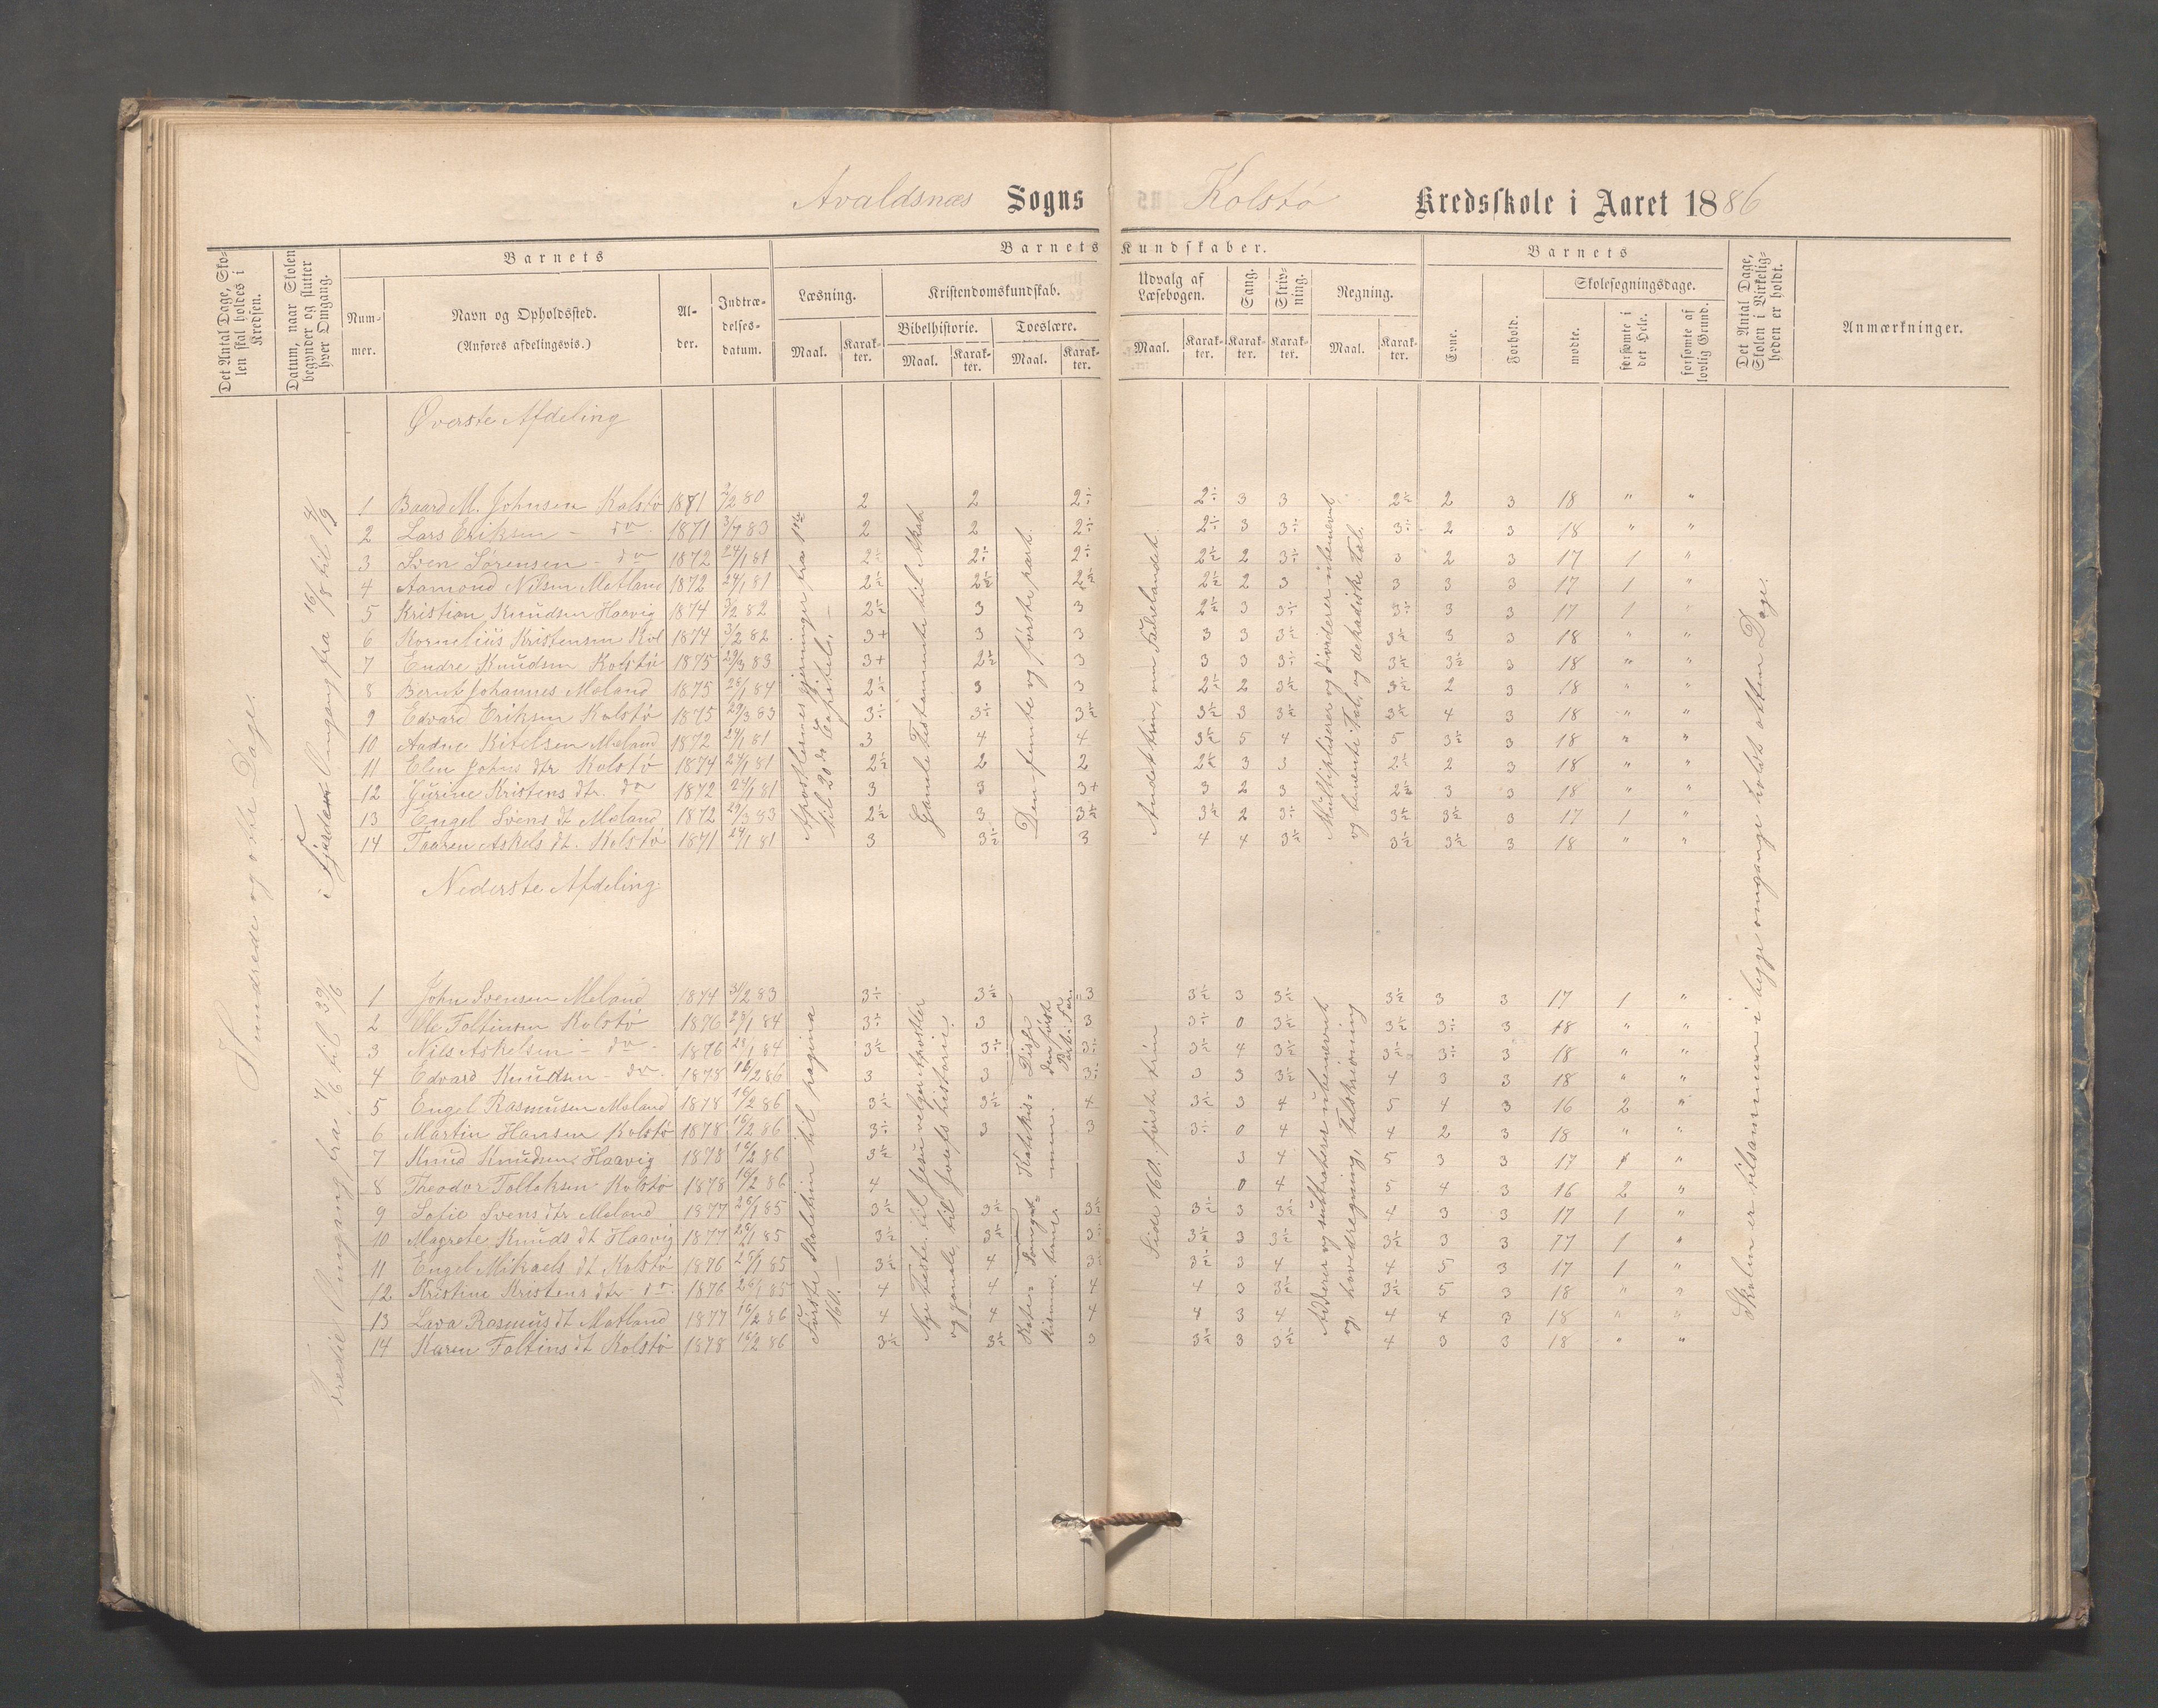 Avaldsnæs Sogns Kolstø Kredsskole i Aaret 1886
Det Antal Dage, Skolen skal holdes i Kredsen.
Datum, naar Skolen begynder og slutter hver Omgang.
Barnets
Nummer.
Navn og Opholdssted.
(Anføres afdelingsvis.)
Alder.
Indtrædelsesdatum.
Barnets Kundskaber.
Læsning.
Maal. Karakter.
Kristendomskundskab.
Bibelhistorie. Troeslære.
Maal. Karakter. Maal. Karakter.
Udvalg af Læsebogen.
Maal. Karakter.
Sang. Karakter.
Skrivning. Karakter.
Regning.
Maal. Karakter.
Barnets
Evne. Forhold.
Skolesøgningsdage.
mødte. forsømte i det Hele. forsømte af lovlig Grund.
Det Antal Dage, Skolen i Virkeligheden er holdt.
Anmærkninger.
Hundrede og otte Dage.
Tredie Omgang fra 7/6 til 30/6
i Fjerde Omgang fra 16/8 til 4/9
Øverste Afdeling
1 Baard M. Johnsen Kolstø 1871 2/2 80 2 2 2÷ 2÷ 3 3 2½ 2 3 18 " "
2 Lars Eriksen - do 1871 3/7 83 2 2 2÷ 2÷ 3 3÷ 3÷ 2 3 18 " "
3 Sven Sørensen - do 1872 24/1 81 2÷ 2÷ 2÷ 2½ 2 3÷ 3 2 3 17 1 "
4 Aamond Nilsen Matland 1872 24/1 81 2½ 2½ 2½ 2½ 2 3 3 3 3 17 1 "
5 Kristian Knudsen Haavig 1874 3/2 82 2½ 3 3 2½ 3 3÷ 3÷ 3 3 17 1 "
6 Kornelius Kristensen Kol 1874 3/2 82 3+ 3 3 3 3 3½ 3½ 3 3 18 " "
7 Endre Knudsen Kolstø 1875 29/3 83 3+ 2½ 3 3 3 3÷ 3½ 3½ 3 18 " "
8 Bernt Johannes Meland 1875 28/1 84 2÷ 3 3 2½ 2 3½ 3½ 2 3 18 " "
9 Edvard Eriksen Kolstø 1875 29/3 83 3÷ 3÷ 3½ 3½ 3 3½ 3½ 4 3 18 " "
10 Aadne Kitelsen Meland 1872 24/1 81 3 4 4 3½ 5 4 5 3½ 3 18 " "
11 Elen Johns dtr Kolstø 1874 24/1 81 2½ 2 2 2½ 3 3 2½ 2 3 18 " "
12 Gurine Kristens dtr. do 1872 24/1 81 3 3 3+ 3 2 3 2½ 3 3 18 " "
13 Engel Svens dt Meland 1872 29/3 83 2½ 3 3½ 3½ 2 3÷ 3½ 3½ 3 17 1 "
14 Taaren Askels dt. Kolstø 1871 24/1 81 3 3½ 3 4 4 3½ 3½ 3½ 3 18 " "
Apostlernes gjerninger fra 1ste til 20de Capitel.
Gamle Testamente til Akab
Den femte og første part.
Andet trin, om Fædrelandet.
Multipliserer og dividerer i ubenævnt og benævnte Tal, og dekadiske Tal.
Nederste Afdeling
1 John Svensen Meland 1874 31/2 83 3÷ 3½ 3 3½ 3 3½ 3½ 3 3 17 1 "
2 Ole Foltinsen Kolstø 1876 28/1 84 3÷ 3 3 3÷ 0 3½ 3½ 3÷ 3 18 " "
3 Nils Askelsen - do 1876 28/1 84 3½ 3÷ 3÷ 3½ 4 3½ 3½ 3÷ 3 18 " "
4 Edvard Knudsen - do 1878 16/2 86 3 3 3÷ 3 3 3½ 4 3 3 18 " "
5 Engel Rasmusen Meland 1878 16/2 86 3½ 3½ 4 3½ 3 4 5 4 3 16 2 "
6 Martin Hansen Kolstø 1878 16/2 86 3÷ 3 3 3÷ 0 4 4 2 3 18 " "
7 Knud Knudsen Haavig 1878 16/2 86 3½ 3 4 5 3 3 17 1 "
8 Theodor Tollaksen Kolstø 1878 16/2 86 4 0 4 5 4 3 16 2 "
9 Sofie Svens dtr Meland 1877 26/1 85 3½ 3½ 3½ 3½ 3 3½ 4 3 3 17 1 "
10 Magrete Knuds dt Haavig 1877 28/1 85 3½ 3½ 3÷ 3½ 3 3½ 3½ 3 3 17 1 "
11 Engel Mikaels dt Kolstø 1876 26/1 85 3½ 4 3½ 3½ 3 4 4 5 3 17 1 "
12 Kristine Kristens dtr do 1876 26/1 85 4 4 4 4 3 3½ 3½ 5 3 18 " "
13 Lava Rasmus dt Matland 1877 16/2 86 4 4 4 4 3 4 4 4 3 18 " "
14 Karen Foltins dt Kolstø 1878 16/2 86 3½ 3½ 3 3½ 3 3½ 4 3 3 18 " "
Første Skoletrin til pagina 160.
Nye Testa. til Jesu velger Apostler og gamle til Josefs historie.
Side 160. første trin
Adderer og subtraherer i ubenævnt og hovedregning, Talskrivning
Skolen er tilsammen i begge omgange holdt otten Dage.